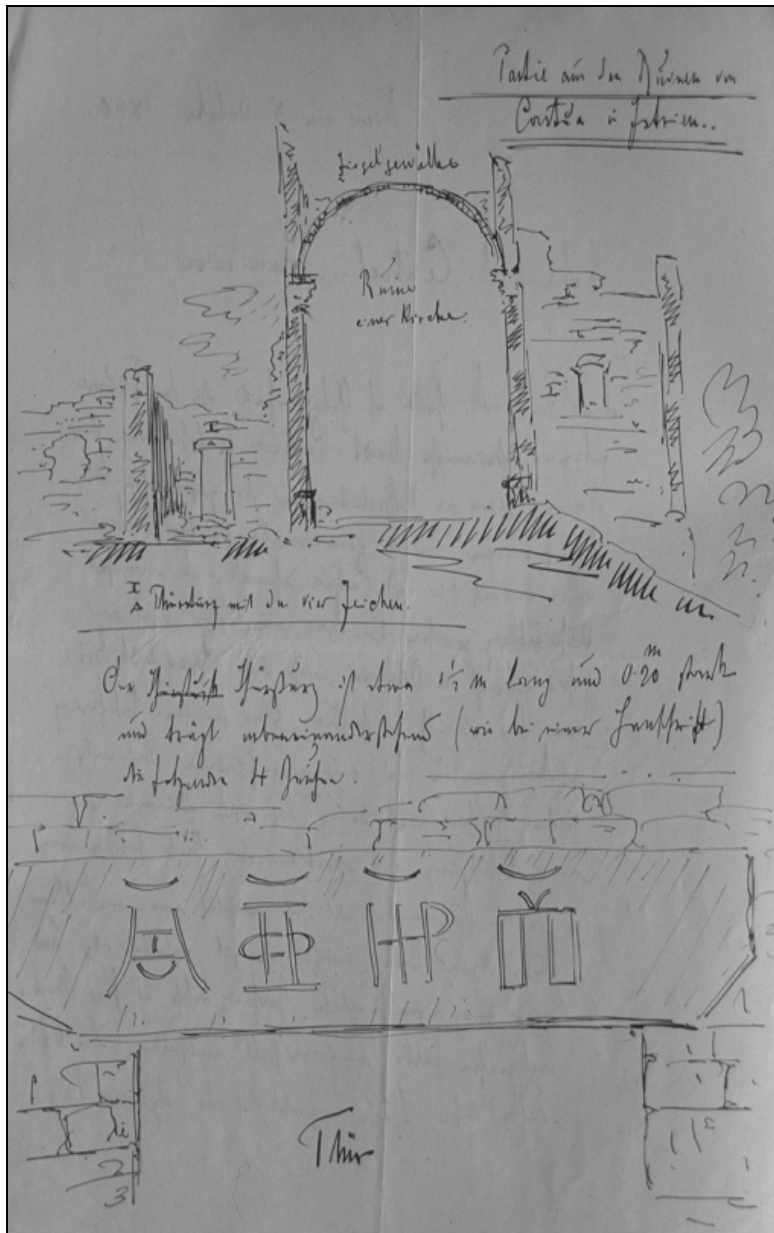 Partie aus den Ruinen von
in Istrien..
Ziegelgewölbe
Ruine
einer Kirche.
I
Δ Thürsturz mit den vier Zeichen.
Der Thürsturz ist etwa 1½ m lang und 0.20 m stark
und trägt nebeneinanderstehend (wie bei einer Inschrift)
die folgenden 4 Zeichen.
Thür